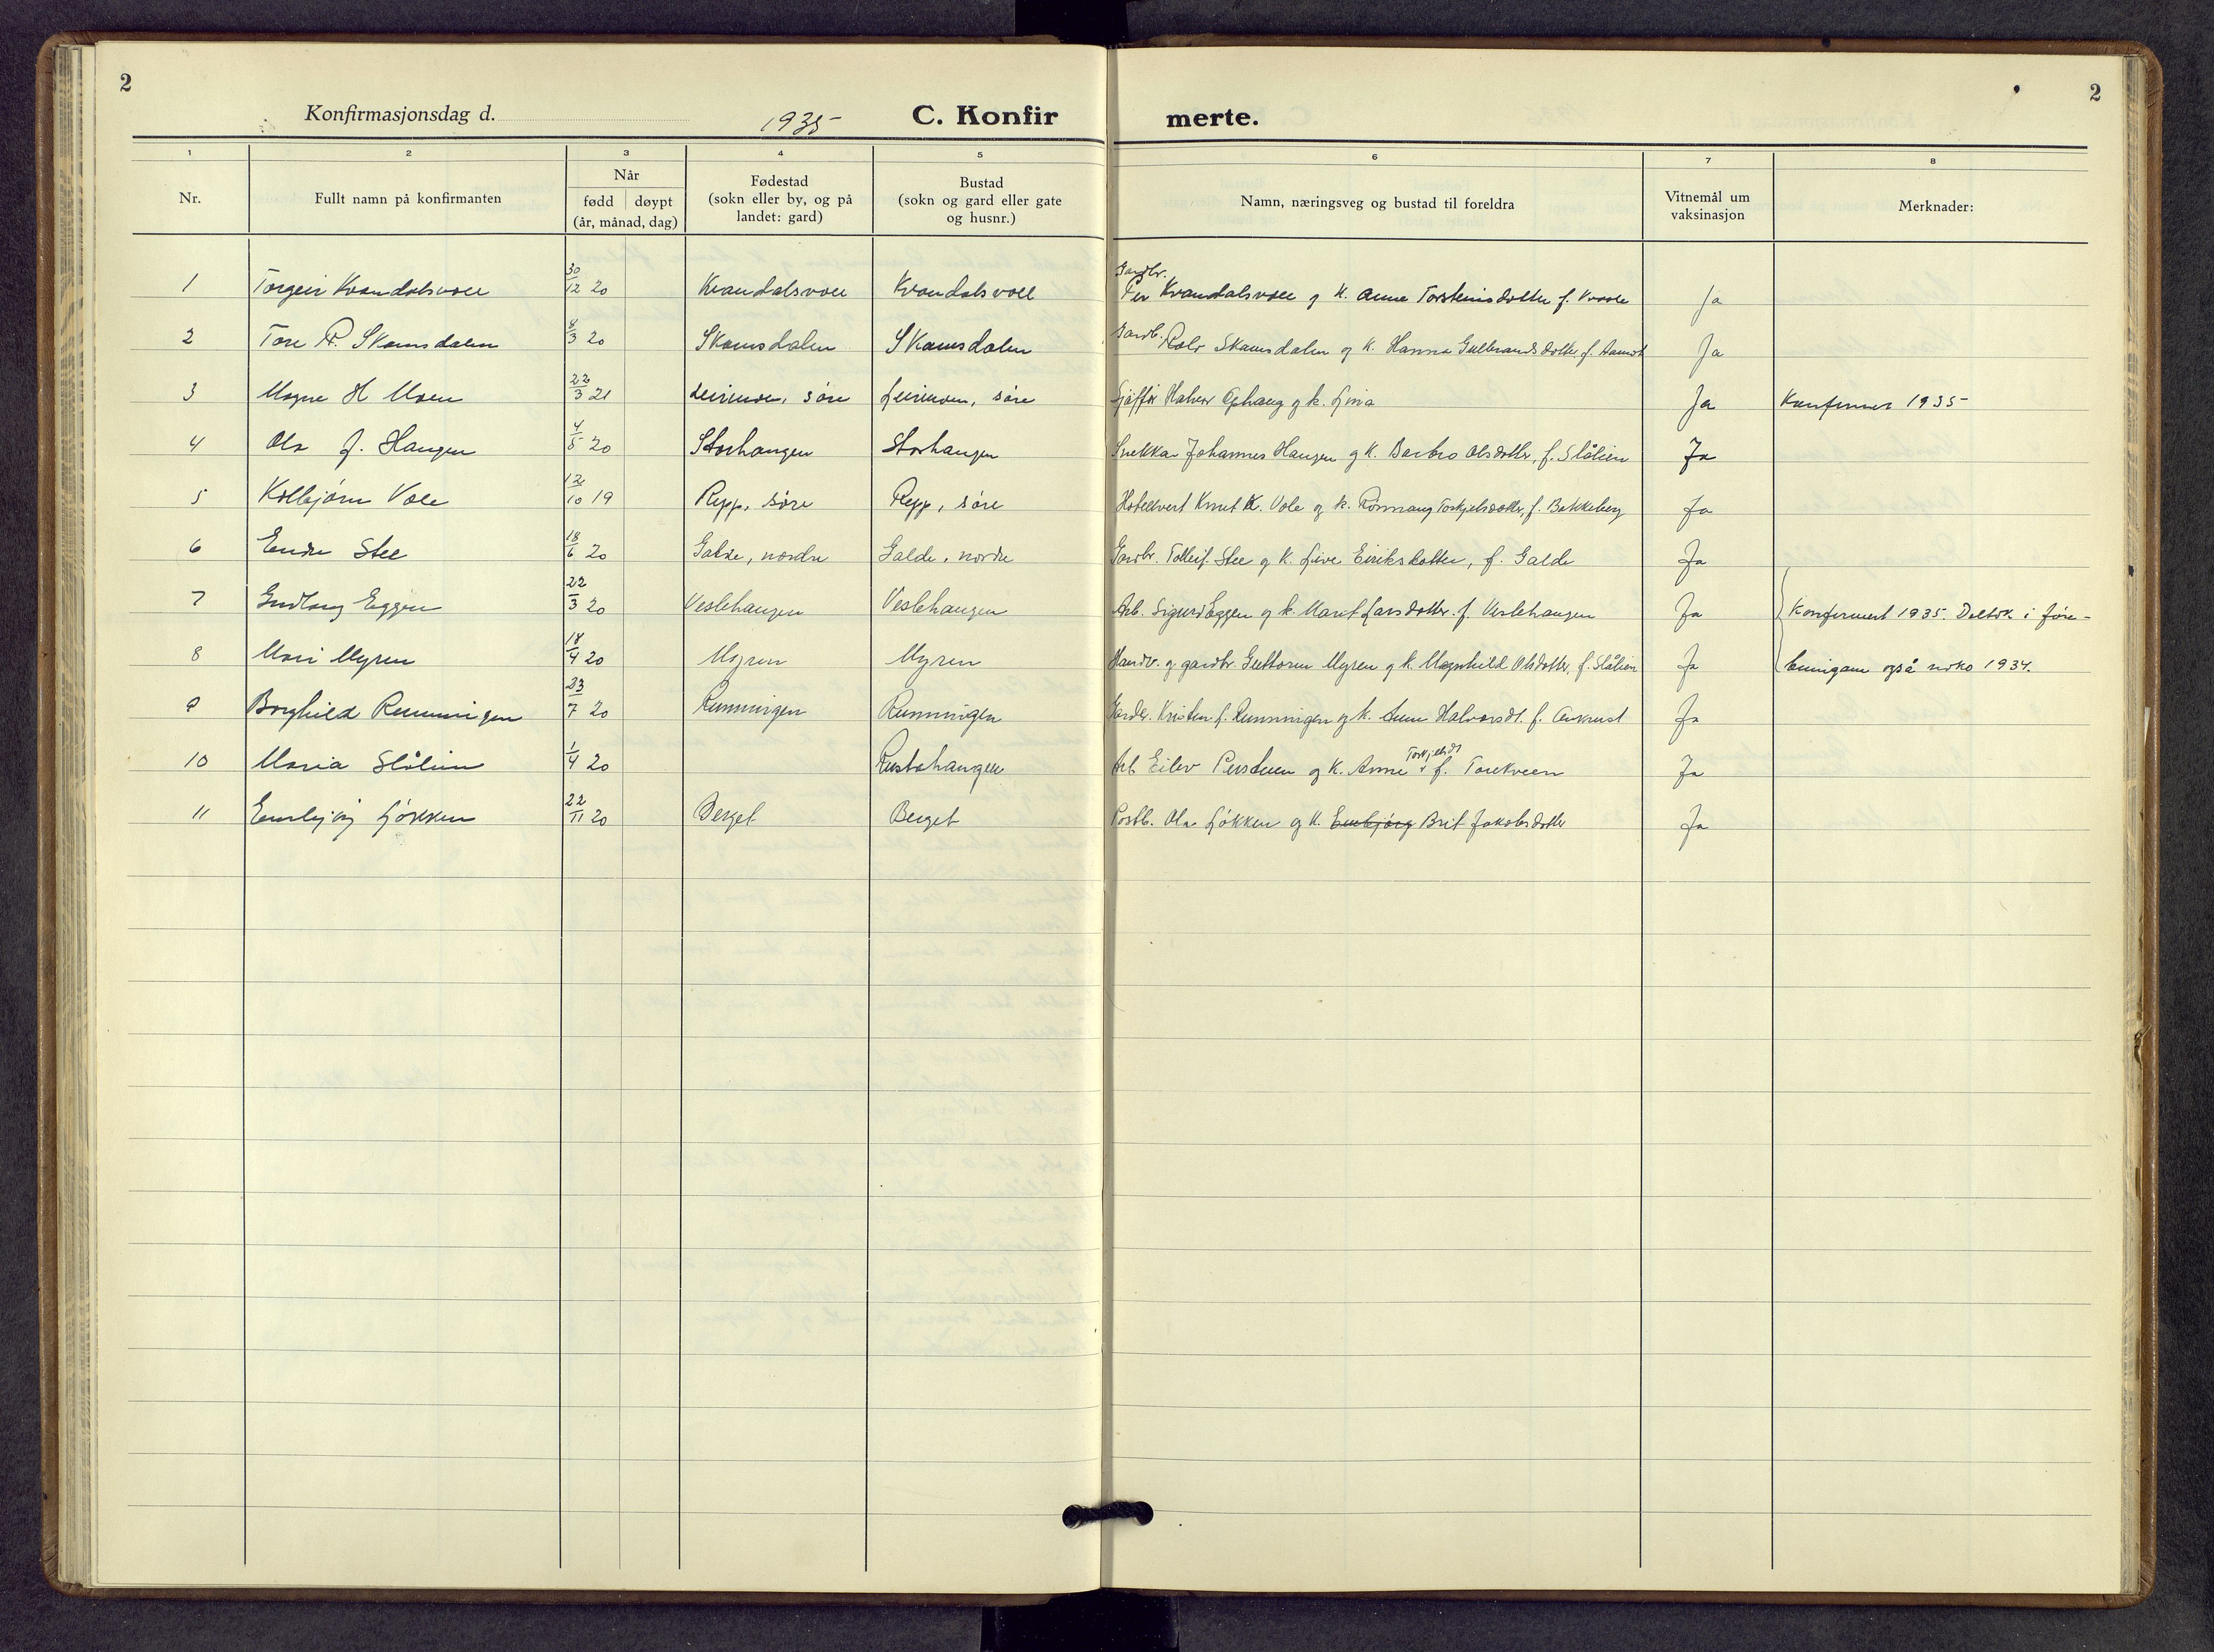 2
Konfirmasjonsdag d. 1935 C. Konfir merte.
2
1 2 3 4 5 6 7 8
Nr. Fullt namn på konfirmanten Når fødd døypt (år, månad, dag) Fødestad (sokn eller by, og på landet: gard) Bustad (sokn og gard eller gate og husnr.) Namn, næringsveg og bustad til foreldra Vitnemål um vaksinasjon Merknader:
1 Torgeir Kvandalsvoll 30/12 20 Kvandalsvoll Kvandalsvoll Gardbr. Per Kvandalsvoll og K. Anne Torsteinsdotter f. Ja
2 Tore R. Skamsdalen 8/3 20 Skamsdalen Skamsdalen Gardb. Rolv Skamsdalen og K. Hanna Gulbrandsdotter f. Ja
3 Magne H Moen 22/3 21 Leirmoen, søre Leirmoen, søre Sjåffør Halvor Ophaug og k. Lina Ja Konfirmer 1935
4 Ola J. Haugen 4/5 20 Storhaugen Storhaugen Snekkar Johannes Haugen og K. Barbro Olsdotter, f. Slålien Ja
5 Kolbjørn Vole 12/10 19 Repp, søre Repp, søre Hotellvert Knut K. Vole og k. Rønnaug Torkjelsdotter, f. Bakkeberg Ja
6 Endre Slee 18/6 20 Galde, nordre Galde, nordre Gardbr. Tolleif Slee og K. Live Eiriksdotter, f. Galde Ja
7 Gudlaug Eggen 22/3 20 Veslehaugen Veslehaugen Arb. Sigurd Eggen og k. Marit Larsdotter f. Veslehaugen Ja Konfirmert 1935. Deltok i føre-
8 Mari Myren 18/4 20 Myren Myren Handv. og gardbr. Guttorm Myren og k. Magnhild Olsdotter, f. Slålien Ja buingane også noko 1934.
9 Borghild Runningen 23/7 20 Runningen Runningen Gardbr. Kristen J. Runningen og k. Anne Halvorsdt. f. Aukrust Ja
10 Maria Slålien 1/4 20 Rustohaugen Arb Eilev Perstuen og K. Anne Torkjelsdt f. Ja
11 Embjørg Løkken 22/11 20 Berget Berget Postb. Ola Løkken og K. Embjørg Brit Jakobsdotter Ja